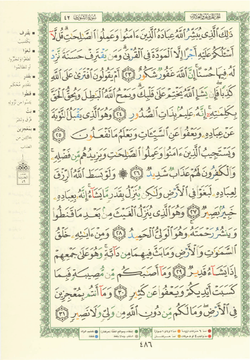 ذَٰلِكَ ٱلَّذِى يُبَشِّرُ ٱللَّهُ عِبَادَهُ ٱلَّذِينَ ءَامَنُوا۟ وَعَمِلُوا۟ ٱلصَّٰلِحَٰتِ قُل لَّآ
أَسْـَٔلُكُمْ عَلَيْهِ أَجْرًا إِلَّا ٱلْمَوَدَّةَ فِى ٱلْقُرْبَىٰ وَمَن يَقْتَرِفْ حَسَنَةً نَّزِدْ
لَهُۥ فِيهَا حُسْنًا إِنَّ ٱللَّهَ غَفُورٌ شَكُورٌ ٢٣ أَمْ يَقُولُونَ ٱفْتَرَىٰ عَلَى
ٱللَّهِ كَذِبًا فَإِن يَشَإِ ٱللَّهُ يَخْتِمْ عَلَىٰ قَلْبِكَ وَيَمْحُ ٱللَّهُ ٱلْبَٰطِلَ وَيُحِقُّ ٱلْحَقَّ
بِكَلِمَٰتِهِۦٓ إِنَّهُۥ عَلِيمٌۢ بِذَاتِ ٱلصُّدُورِ ٢٤ وَهُوَ ٱلَّذِى يَقْبَلُ ٱلتَّوْبَةَ
عَنْ عِبَادِهِۦ وَيَعْفُوا۟ عَنِ ٱلسَّيِّـَٔاتِ وَيَعْلَمُ مَا تَفْعَلُونَ ٢٥
وَيَسْتَجِيبُ ٱلَّذِينَ ءَامَنُوا۟ وَعَمِلُوا۟ ٱلصَّٰلِحَٰتِ وَيَزِيدُهُم مِّن فَضْلِهِۦ
وَٱلْكَٰفِرُونَ لَهُمْ عَذَابٌ شَدِيدٌ ٢٦ وَلَوْ بَسَطَ ٱللَّهُ ٱلرِّزْقَ
لِعِبَادِهِۦ لَبَغَوْا۟ فِى ٱلْأَرْضِ وَلَٰكِن يُنَزِّلُ بِقَدَرٍ مَّا يَشَآءُ إِنَّهُۥ بِعِبَادِهِۦ
خَبِيرٌۢ بَصِيرٌ ٢٧ وَهُوَ ٱلَّذِى يُنَزِّلُ ٱلْغَيْثَ مِنۢ بَعْدِ مَا قَنَطُوا۟
وَيَنشُرُ رَحْمَتَهُۥ وَهُوَ ٱلْوَلِىُّ ٱلْحَمِيدُ ٢٨ وَمِنْ ءَايَٰتِهِۦ خَلْقُ
ٱلسَّمَٰوَٰتِ وَٱلْأَرْضِ وَمَا بَثَّ فِيهِمَا مِن دَآبَّةٍ وَهُوَ عَلَىٰ جَمْعِهِمْ
إِذَا يَشَآءُ قَدِيرٌ ٢٩ وَمَآ أَصَٰبَكُم مِّن مُّصِيبَةٍ فَبِمَا
كَسَبَتْ أَيْدِيكُمْ وَيَعْفُوا۟ عَن كَثِيرٍ ٣٠ وَمَآ أَنتُم بِمُعْجِزِينَ
فِى ٱلْأَرْضِ وَمَا لَكُم مِّن دُونِ ٱللَّهِ مِن وَلِىٍّ وَلَا نَصِيرٍ ٣١
٤٨٦